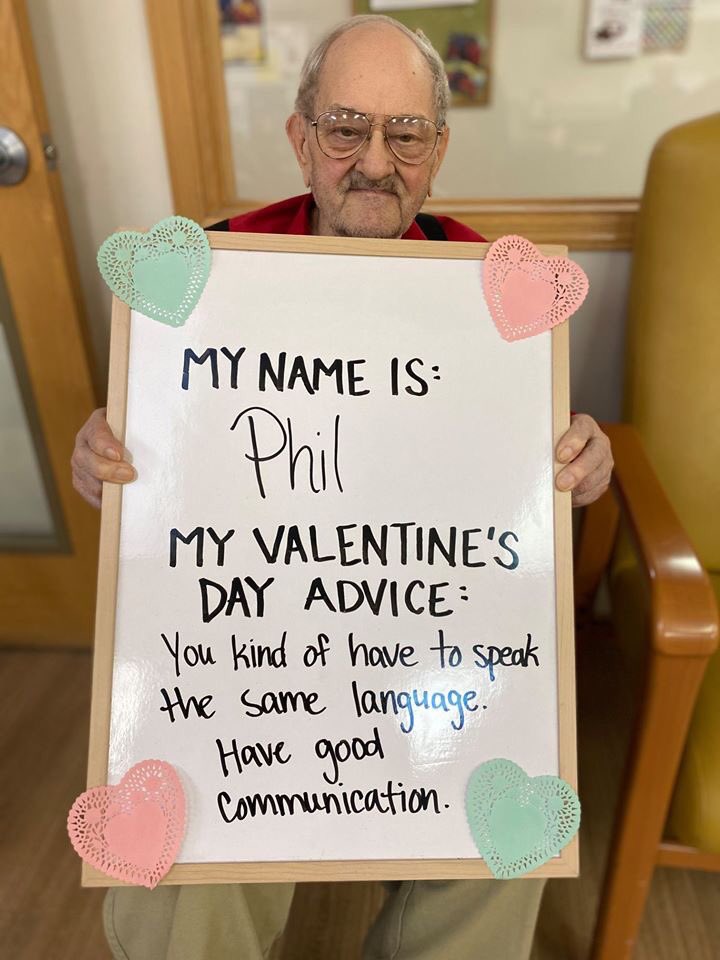 MY NAME IS:
Phil
MY VALENTINE'S
DAY ADVICE:
You kind of have to speak
the same language.
Have good
communication.